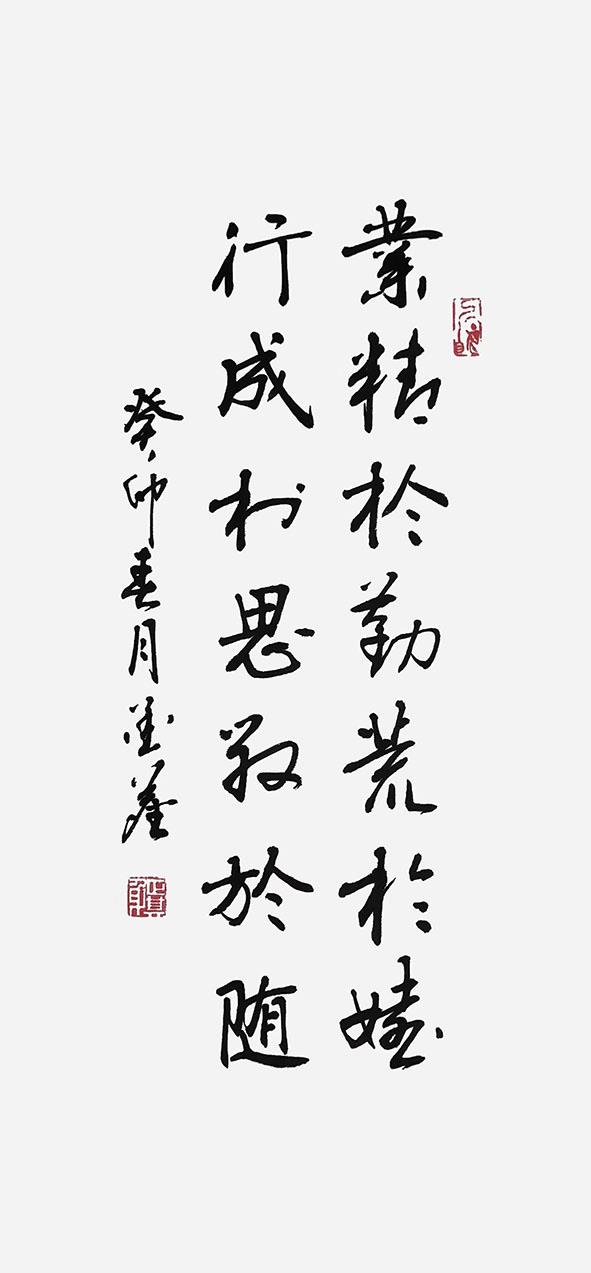 業精於勤荒於嬉
行成於思毀於随
癸卯春月